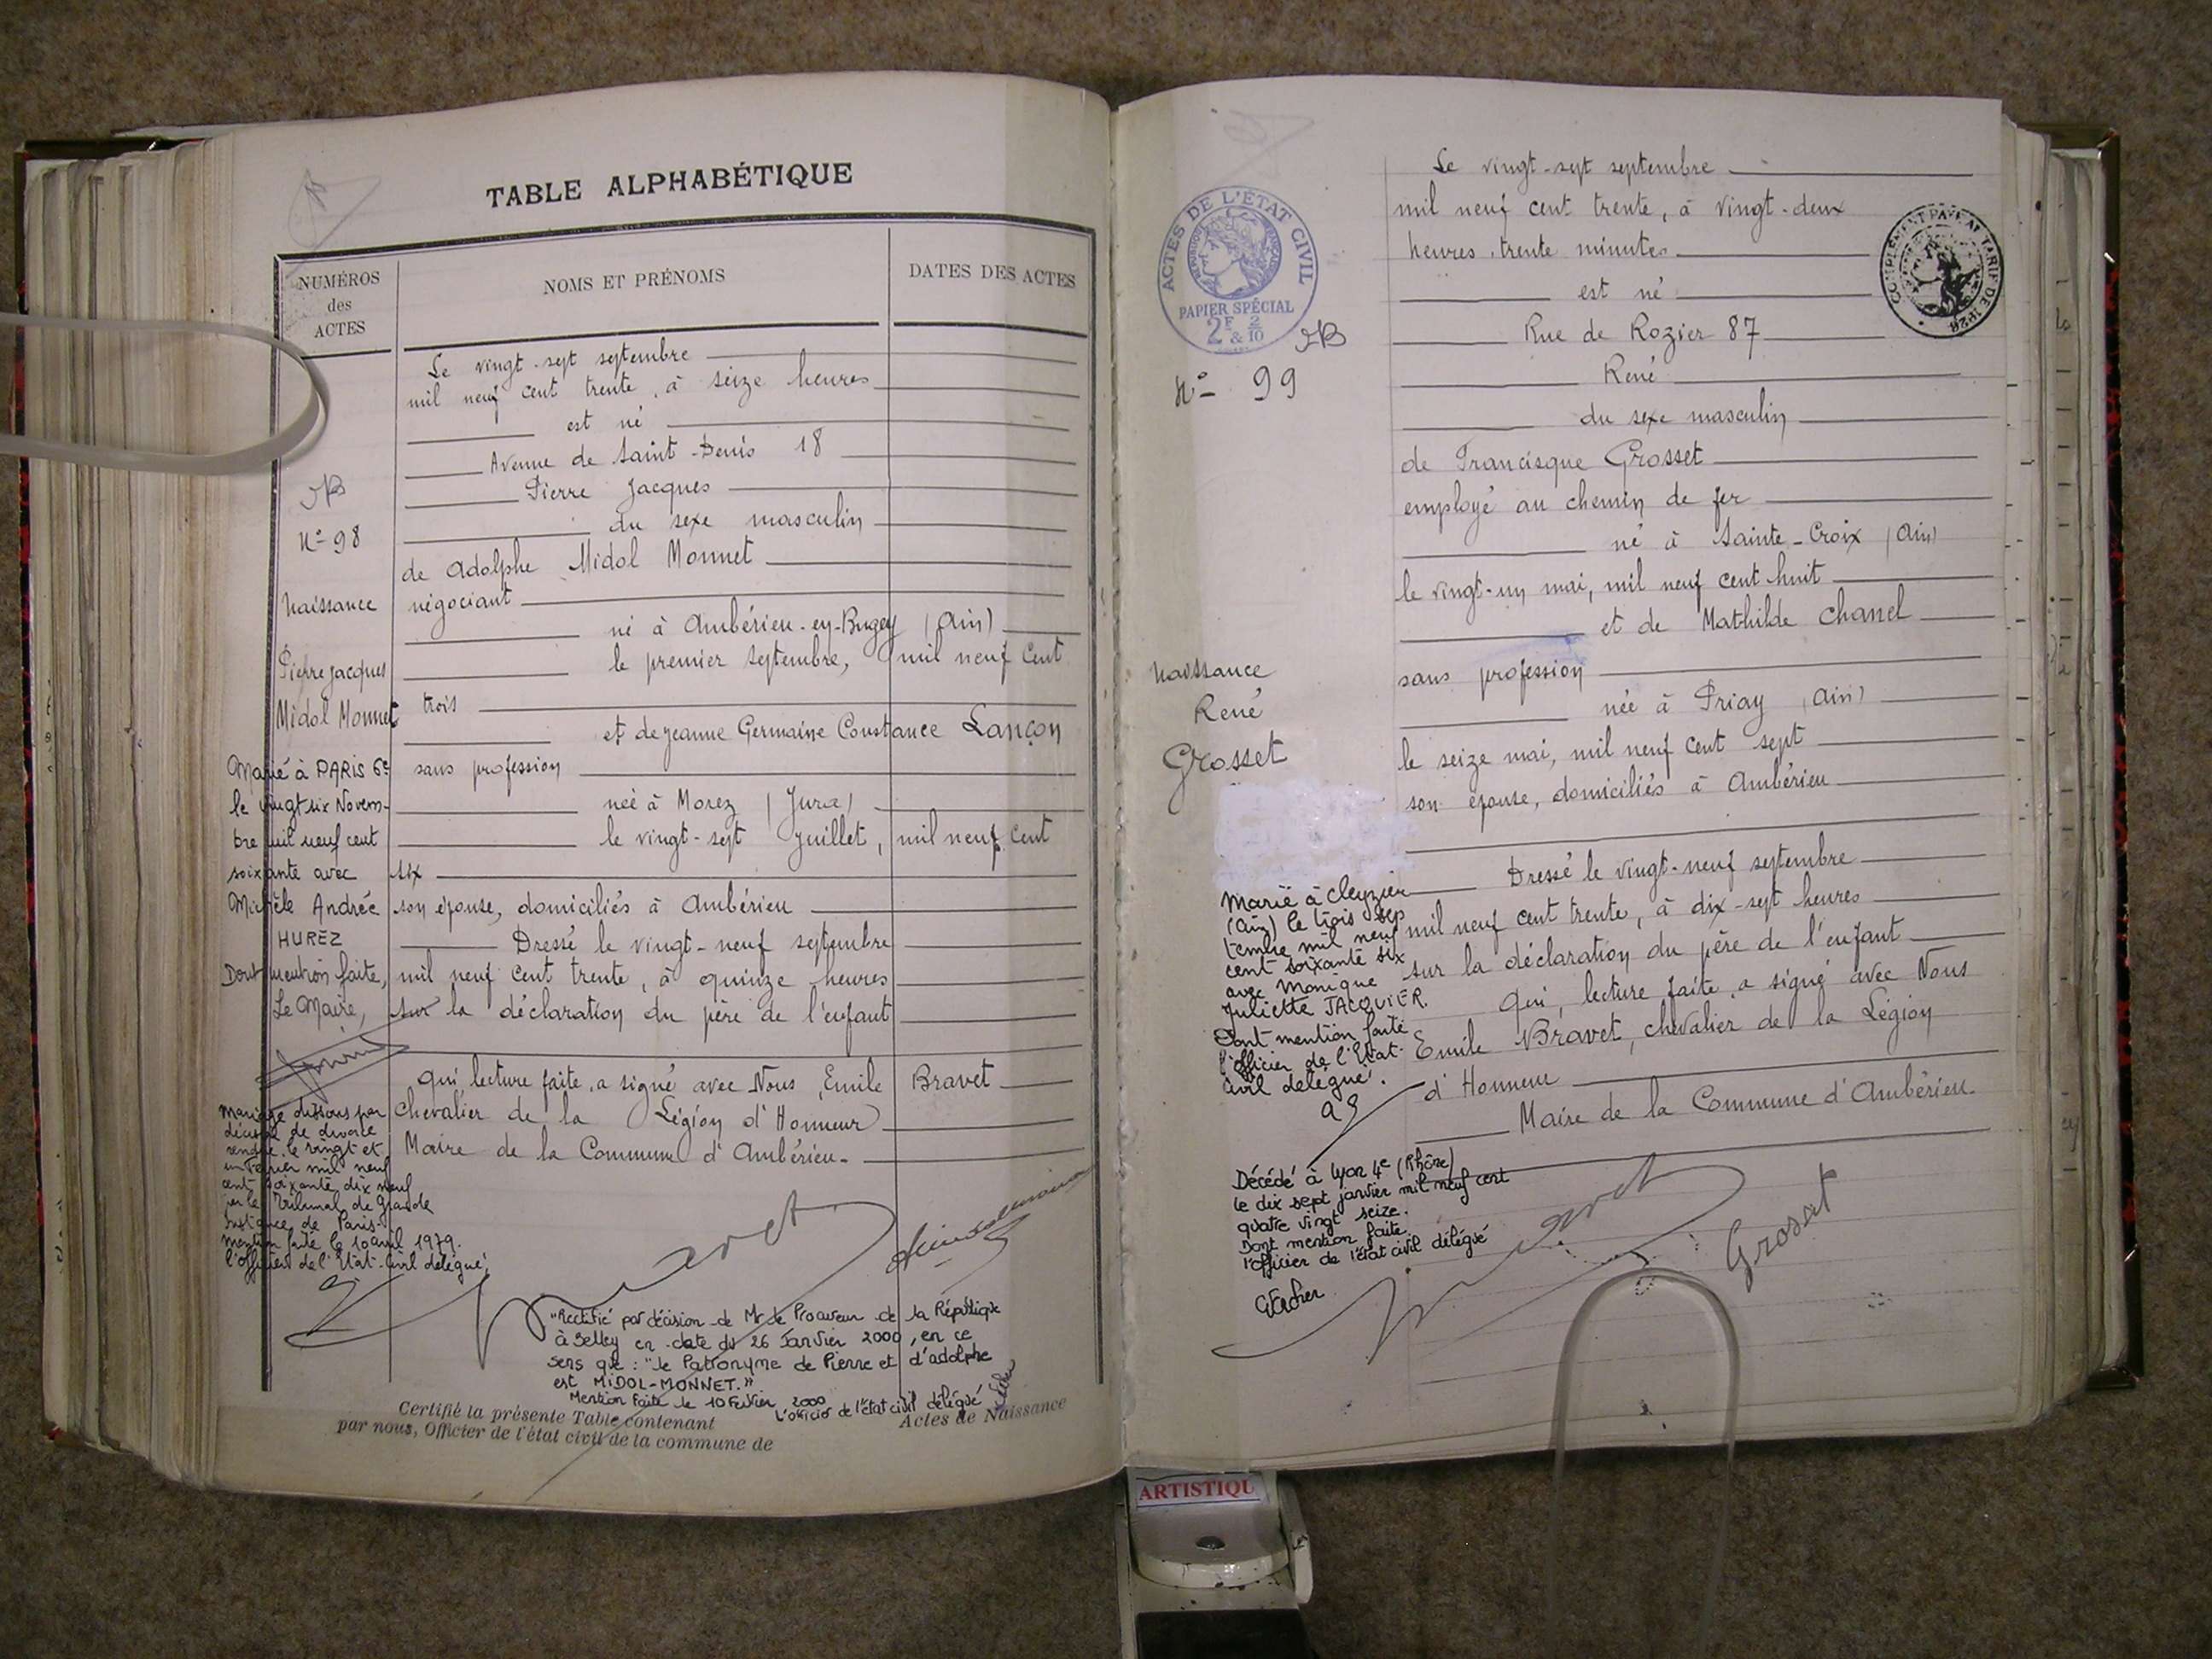 TABLE ALPHABÉTIQUE
NUMÉROS
des
ACTES
NOMS ET PRÉNOMS
DATES DES ACTES
Le vingt-sept septembre
mil neuf cent trente, à seize heures
est né
Avenue de Saint-Denis 18
Pierre Jacques
du sexe masculin
de Adolphe Midol Monnet
négociant
né à Ambérieu-en-Bugey (Ain)
le premier septembre, mil neuf cent
trois
et de Jeanne Germaine Constance Lançon
sans profession
née à Morez (Jura)
le vingt-sept Juillet, mil neuf cent
six
son épouse, domiciliés à Ambérieu
Dressé le vingt-neuf septembre
mil neuf cent trente, à quinze heures
sur la déclaration du père de l'enfant
qui, lecture faite, a signé avec Nous, Emile Bravet
Chevalier de la Légion d'Honneur
Maire de la Commune d'Ambérieu.
N° 98
Naissance
Pierre Jacques
Midol Monnet
Marié à PARIS 6e
le vingt six Novem-
bre mil neuf cent
soixante avec
Michèle Andrée
HUREZ
Dont mention faite,
Le Maire,
Mariage dissous par
décision de divorce
rendue le vingt et
un Février mil neuf
cent soixante dix neuf
par le Tribunal de Grande
Instance de Paris.
Mention faite le 10 avril 1979.
l'officier de l'Etat-Civil délégué,
"Rectifié par décision de Mr le Procureur de la République
à Belley en date du 26 Janvier 2000, en ce
sens que : "le Patronyme de Pierre et d'adolphe
est MIDOL-MONNET."
Mention faite le 10 Février 2000
L'officier de l'état civil délégué
Certifié la présente Table contenant Actes de Naissance
par nous, Officier de l'état civil de la commune de
ACTES DE L'ÉTAT CIVIL
RÉPUBLIQUE FRANÇAISE
PAPIER SPÉCIAL
2F & 2/10
COMPLÉMENT PAYÉ AU TARIF DE 1926
N° 99
Naissance
René
Grosset
Le vingt-sept septembre
mil neuf cent trente, à vingt-deux
heures trente minutes
est né
Rue de Rozier 87
René
du sexe masculin
de Francisque Grosset
employé au chemin de fer
né à Sainte-Croix (Ain)
le vingt-un mai, mil neuf cent huit
et de Mathilde Chanel
sans profession
née à Priay (Ain)
le seize mai, mil neuf cent sept
son épouse, domiciliés à Ambérieu
Dressé le vingt-neuf septembre
mil neuf cent trente, à dix-sept heures
sur la déclaration du père de l'enfant
qui, lecture faite, a signé avec Nous
Emile Bravet, chevalier de la Légion
d'Honneur
Maire de la Commune d'Ambérieu.
Marié à Cleyzieu
(Ain) le trois sep
tembre mil neuf
cent soixante six
avec Monique
Juliette JACQUIER.
Dont mention faite
l'officier de l'Etat-
Civil délégué.
Décédé à Lyon 4e (Rhône)
le dix sept janvier mil neuf cent
quatre vingt seize.
Dont mention faite
l'officier de l'état civil délégué
Grosset
ARTISTIQU